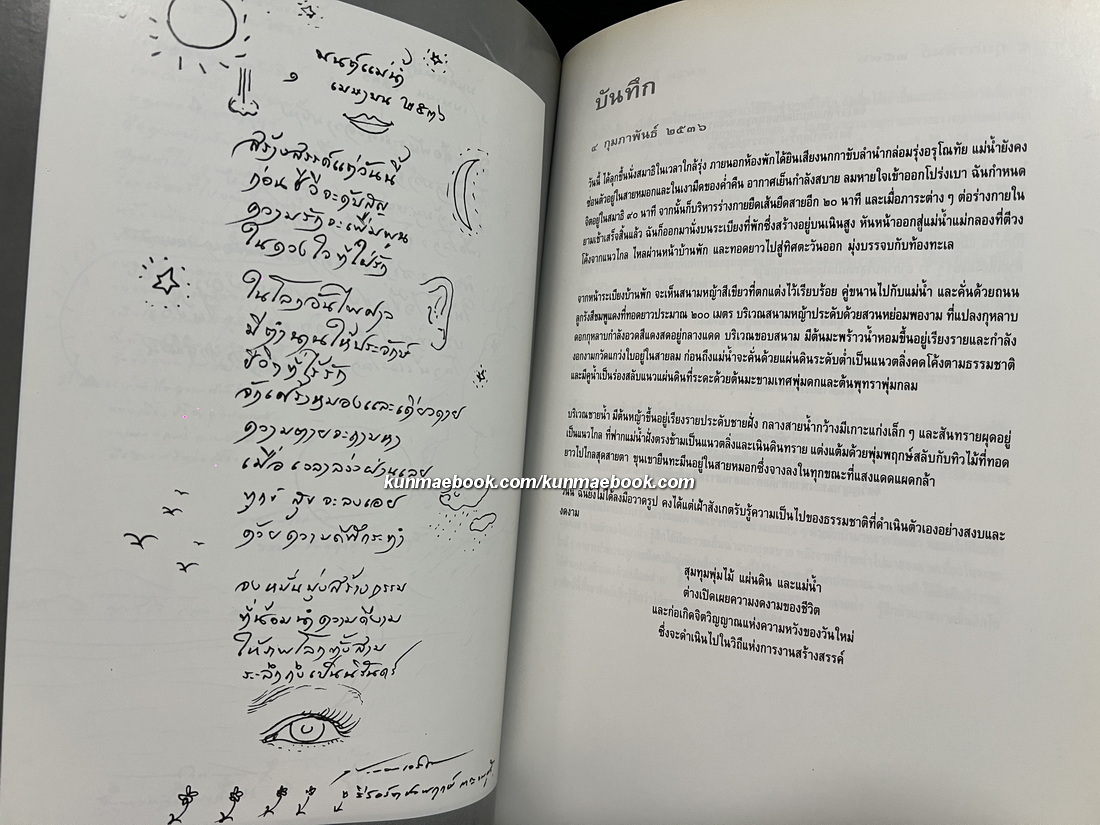 มนต์แม่น้ำ
๑ เมษายน ๒๕๓๖
สร้างสรรค์แต่วันนี้
ก่อนชีวีจะดับสิ้น
ความรักจะเพิ่มพูน
ในดวงใจที่ใฝ่รัก
ในโลกอันไพศาล
มีตำนานให้ประจักษ์
ชีวิตที่ไร้รัก
จักเศร้าหมองและเดียวดาย
ความตายจะตามหา
เมื่อเวลาล่วงผ่านเลย
ทุกข์ สุข จะลงเอย
ด้วยความดีที่กระทำ
จงหมั่นมุ่งสร้างกรรม
ที่น้อมนำความดีงาม
ให้ภพโลกทั้งสาม
ระลึกถึงเป็นนิรันดร์
บันทึก
๔ กุมภาพันธ์ ๒๕๓๖
วันนี้ ได้ลุกขึ้นนั่งสมาธิในเวลาใกล้รุ่ง ภายนอกห้องพักได้ยินเสียงนกกาขับลำนำกล่อมรุ่งอรุโณทัย แม่น้ำยังคง
ซ่อนตัวอยู่ในสายหมอกและในเงามืดของค่ำคืน อากาศเย็นกำลังสบาย ลมหายใจเข้าออกโปร่งเบา ฉันกำหนด
จิตอยู่ในสมาธิ ๙๐ นาที จากนั้นก็บริหารร่างกายยืดเส้นยืดสายอีก ๒๐ นาที และเมื่อภาระต่าง ๆ ต่อร่างกายใน
ยามเช้าเสร็จสิ้นแล้ว ฉันก็ออกมานั่งบนระเบียงที่พักซึ่งสร้างอยู่บนเนินสูง หันหน้าออกสู่แม่น้ำแม่กลองที่ตีวง
โค้งจากแนวไกล ไหลผ่านหน้าบ้านพัก และทอดยาวไปสู่ทิศตะวันออก มุ่งบรรจบกับท้องทะเล
จากหน้าระเบียงบ้านพัก จะเห็นสนามหญ้าสีเขียวที่ตกแต่งไว้เรียบร้อย คู่ขนานไปกับแม่น้ำ และคั่นด้วยถนน
ลูกรังสีชมพูแดงที่ทอดยาวประมาณ ๒๐๐ เมตร บริเวณสนามหญ้าประดับด้วยสวนหย่อมพองาม ที่แปลงกุหลาบ
ดอกกุหลาบกำลังอวดสีแดงสดอยู่กลางแดด บริเวณขอบสนาม มีต้นมะพร้าวน้ำหอมขึ้นอยู่เรียงรายและกำลัง
งอกงามกวัดแกว่งใบอยู่ในสายลม ก่อนถึงแม่น้ำจะคั่นด้วยแผ่นดินระดับต่ำเป็นแนวตลิ่งคดโค้งตามธรรมชาติ
และมีคูน้ำเป็นร่องสลับแนวแผ่นดินที่ระดะด้วยต้นมะขามเทศพุ่มดกและต้นพุทราพุ่มกลม
บริเวณชายน้ำ มีต้นหญ้าขึ้นอยู่เรียงรายประดับชายฝั่ง กลางสายน้ำกว้างมีเกาะแก่งเล็ก ๆ และสันทรายผุดอยู่
เป็นแนวไกล ที่ฟากแม่น้ำฝั่งตรงข้ามเป็นแนวตลิ่งและเนินดินทราย แต่งแต้มด้วยพุ่มพฤกษ์สลับกับทิวไม้ที่ทอด
ยาวไปไกลสุดสายตา ขุนเขายืนทะมึนอยู่ในสายหมอกซึ่งจางลงในทุกขณะที่แสงแดดแผดกล้า
kunmaebook.com/kunmaebook.com
วันนี้ ฉันยังไม่ได้ลงมือวาดรูป คงได้แต่เฝ้าสังเกตรับรู้ความเป็นไปของธรรมชาติที่ดำเนินตัวเองอย่างสงบและ
งดงาม
สุมทุมพุ่มไม้ แผ่นดิน และแม่น้ำ
ต่างเปิดเผยความงดงามของชีวิต
และก่อเกิดจิตวิญญาณแห่งความหวังของวันใหม่
ซึ่งจะดำเนินไปในวิถีแห่งการงานสร้างสรรค์